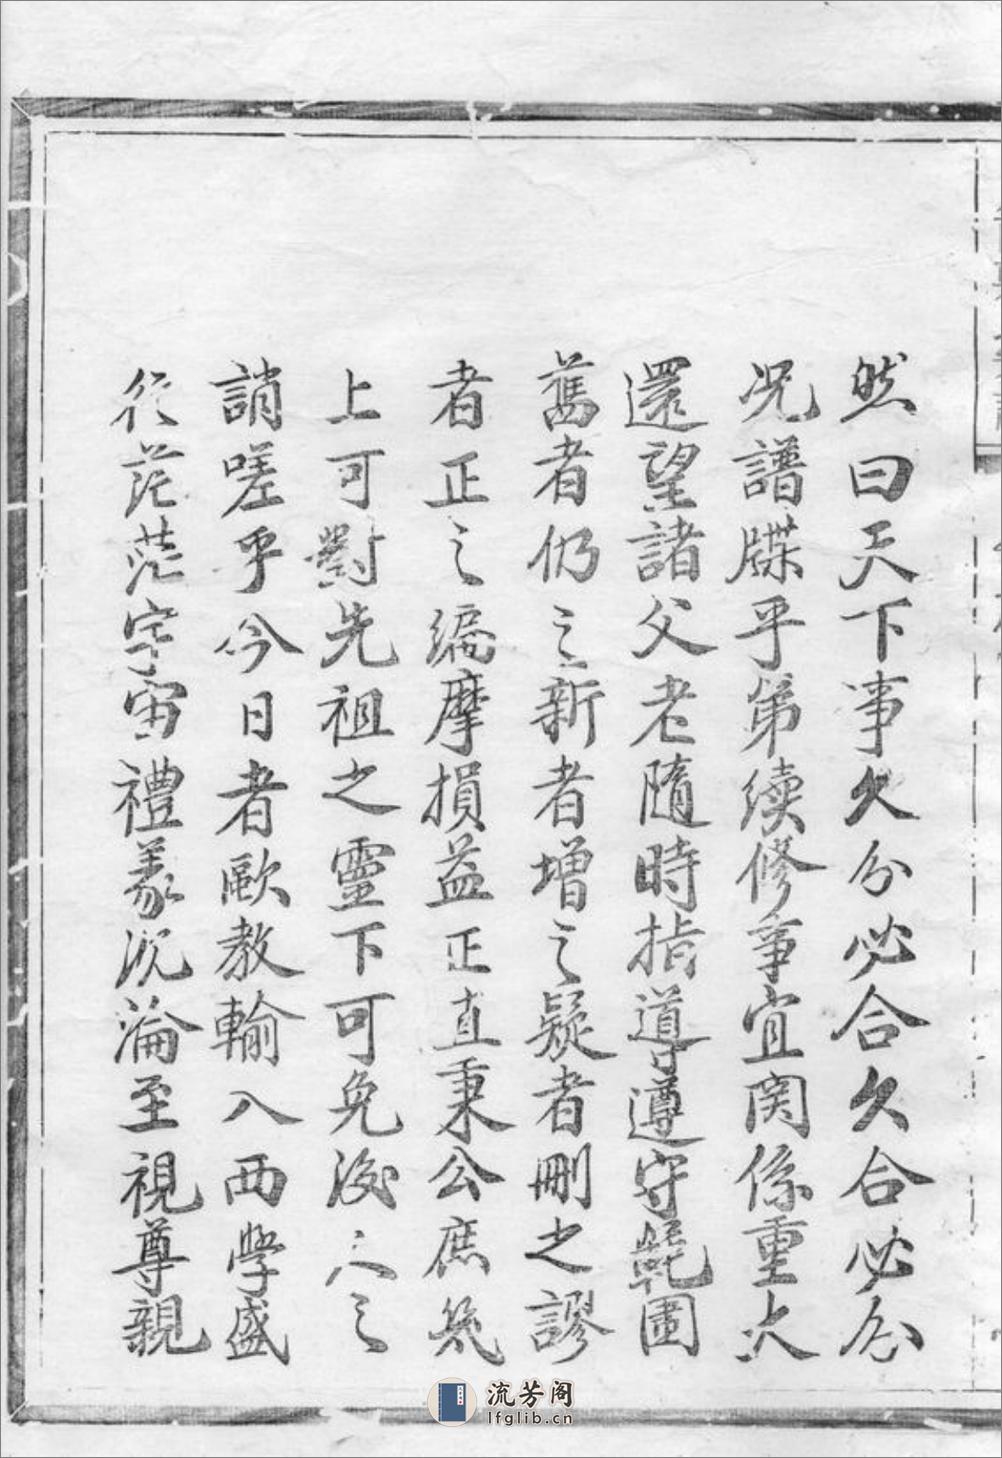 然曰天下事久分必合久合必分
况譜牒乎第續修事宜関係重大
還望諸父老隨時指導遵守範圍
舊者仍之新者增之疑者刪之謬
者正之編摩損益正直秉公庶幾
上可對先祖之靈下可免後人之
誚嗟乎今日者歐教輸入西學盛
行茫茫宇宙禮義沉淪至視尊親
流芳阁
lfglib.cn